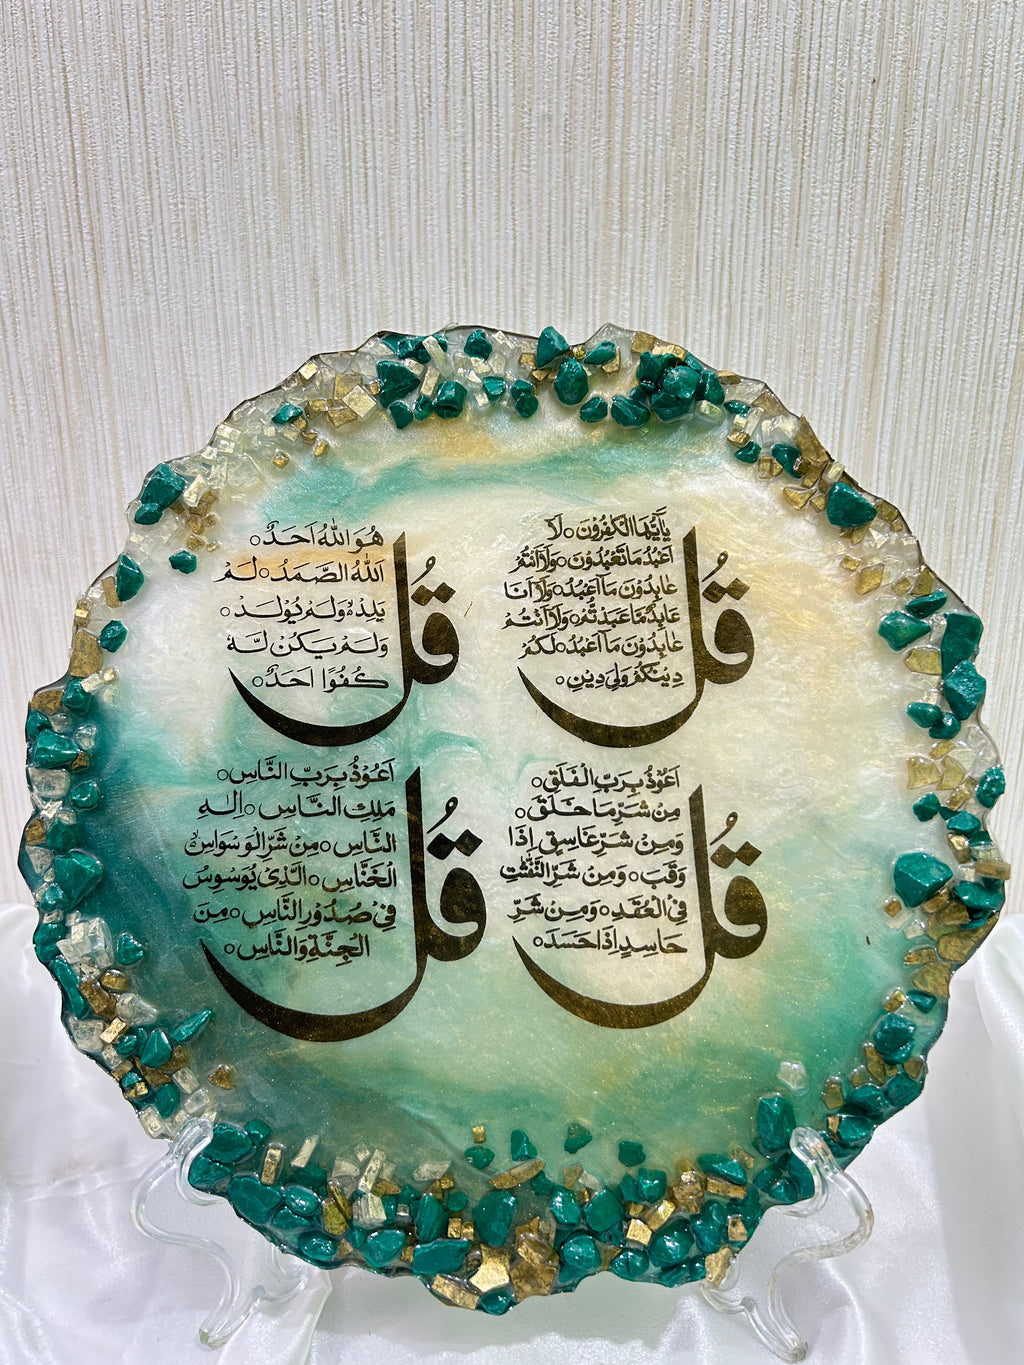 قُل
يَآاَيُّهَا الْكٰفِرُوْنَ ○ لَآ
اَعْبُدُ مَا تَعْبُدُوْنَ ○ وَلَآ اَنْتُمْ
عٰبِدُوْنَ مَآ اَعْبُدُ ○ وَلَآ اَنَا
عَابِدٌ مَّا عَبَدْتُّمْ ○ وَلَآ اَنْتُمْ
عٰبِدُوْنَ مَآ اَعْبُدُ ○ لَكُمْ
دِيْنُكُمْ وَلِيَ دِيْنِ ○
قُل
هُوَ اللّٰهُ اَحَدٌ ○
اَللّٰهُ الصَّمَدُ ○ لَمْ
يَلِدْ ○ وَلَمْ يُوْلَدْ ○
وَلَمْ يَكُنْ لَّهٗ
كُفُوًا اَحَدٌ ○
قُل
اَعُوْذُ بِرَبِّ الْفَلَقِ ○
مِنْ شَرِّ مَا خَلَقَ ○
وَمِنْ شَرِّ غَاسِقٍ اِذَا
وَقَبَ ○ وَمِنْ شَرِّ النَّفّٰثٰتِ
فِي الْعُقَدِ ○ وَمِنْ شَرِّ
حَاسِدٍ اِذَا حَسَدَ ○
قُل
اَعُوْذُ بِرَبِّ النَّاسِ ○
مَلِكِ النَّاسِ ○ اِلٰهِ
النَّاسِ ○ مِنْ شَرِّ الْوَسْوَاسِ
الْخَنَّاسِ ○ الَّذِيْ يُوَسْوِسُ
فِيْ صُدُوْرِ النَّاسِ ○ مِنَ
الْجِنَّةِ وَالنَّاسِ ○